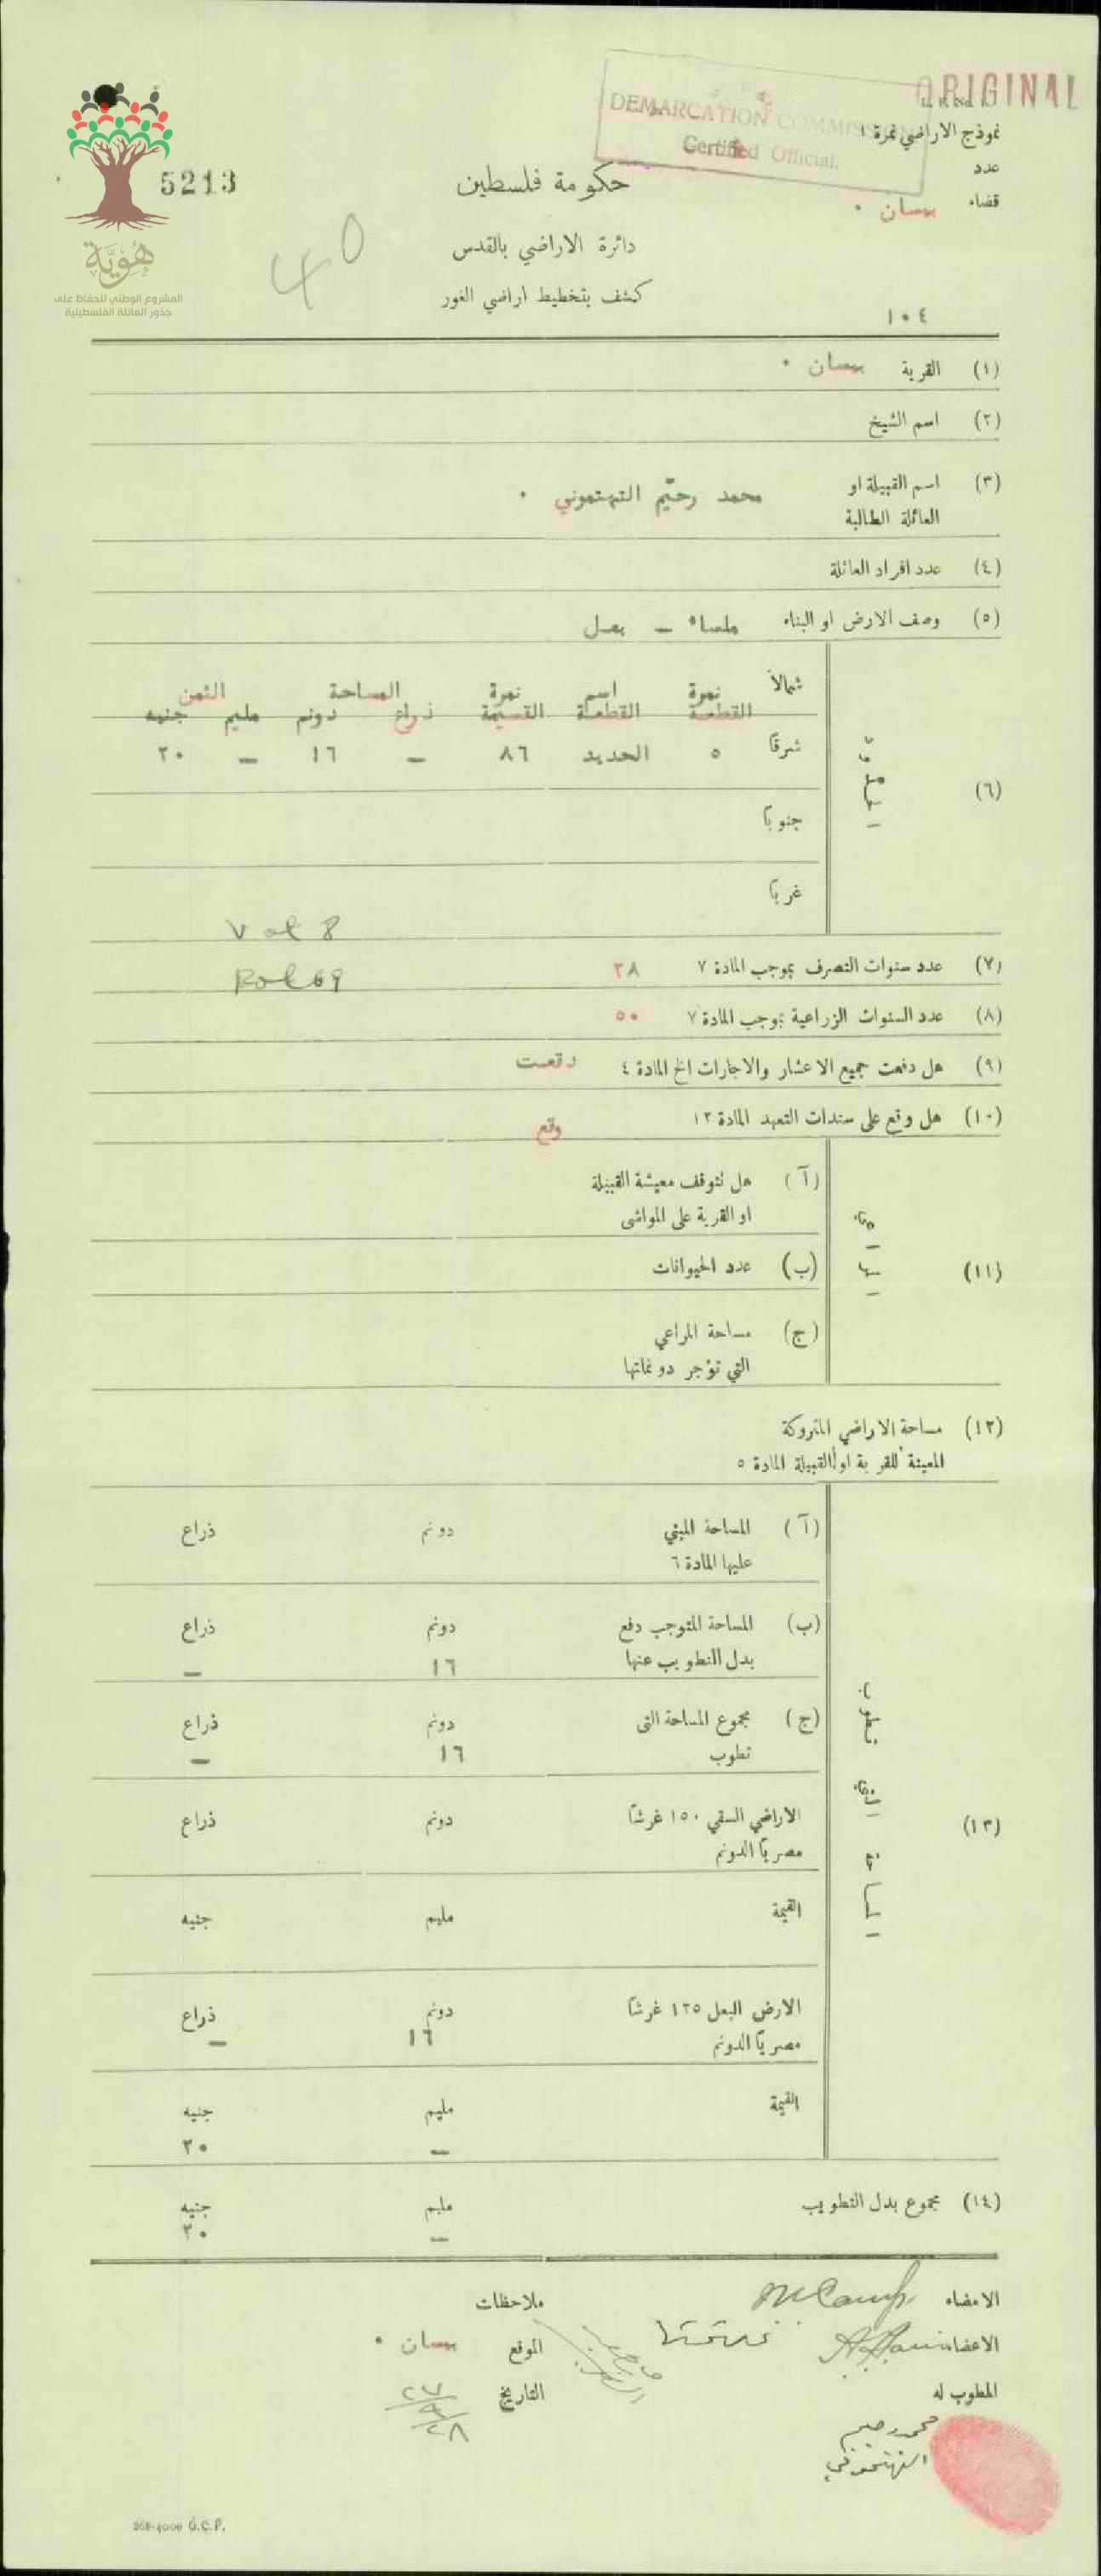 ORIGINAL
DEMARCATION COMMISSION
Certified Official.
نموذج الاراضي نمرة ١
عدد
5213
حكومة فلسطين
قضاء بيسان .
دائرة الاراضي بالقدس
40
كشف بتخطيط اراضي الغور
١٠٤
هُوِيَّة
المشروع الوطني للحفاظ على
جذور العائلة الفلسطينية
(١) القرية بيسان .
(٢) اسم الشيخ
(٣) اسم القبيلة او
العائلة الطالبة محمد رحيّم التهتموني .
(٤) عدد افراد العائلة
(٥) وصف الارض او البناء ملساء - بعل
(٦) الحدود
شمالاً
نمرة اسم نمرة المساحة الثمن
القطعة القطعة القسيمة ذراع دونم مليم جنيه
شرقاً ٥ الحديد ٨٦ - ١٦ - ٢٠
جنوباً
غرباً
Vol 8
(٧) عدد سنوات التصرف بموجب المادة ٧ ٢٨
Rol 69
(٨) عدد السنوات الزراعية بموجب المادة ٧ ٥٠
(٩) هل دفعت جميع الاعشار والاجارات الخ المادة ٤ دفعت
(١٠) هل وقع على سندات التعهد المادة ١٣ وقع
(١١)
(آ) هل تتوقف معيشة القبيلة
او القرية على المواشي
(ب) عدد الحيوانات
(ج) مساحة المراعي
التي تؤجر دونماتها
(١٢) مساحة الاراضي المتروكة
المعينة للقرية او القبيلة المادة ٥
(١٣)
(آ) المساحة المبني دونم ذراع
عليها المادة ٦
(ب) المساحة المتوجب دفع دونم ذراع
بدل التطويب عنها ١٦ -
(ج) مجموع المساحة التي دونم ذراع
تطوب ١٦ -
الاراضي السقي ١٥٠ غرشاً دونم ذراع
مصرياً الدونم
القيمة مليم جنيه
الارض البعل ١٢٥ غرشاً دونم ذراع
مصرياً الدونم ١٦ -
القيمة مليم جنيه
- ٢٠
(١٤) مجموع بدل التطويب مليم جنيه
- ٢٠
الامضاء ملاحظات
الاعضاء الموقع بيسان .
المطوب له التاريخ
محمد رحيم
التهتموني
268-4000 G.C.P.